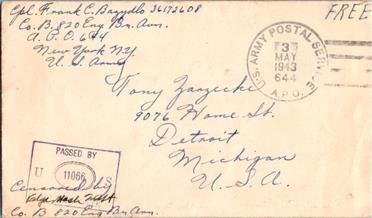 Cpl. Frank C. Bazydlo 36172608
Co. B. 820 Eng. Bn. Avn.
A.P.O. 644
New York N.Y.
U.S. Army
FREE
U.S. ARMY POSTAL SERVICE
3
MAY
1943
644
A.P.O.
Tony Zarzecki
9076 Home St.
Detroit
Michigan
U.S.A.
PASSED BY
U 11066 S
Censored by
Co. B 820 Eng Bn. Avn.